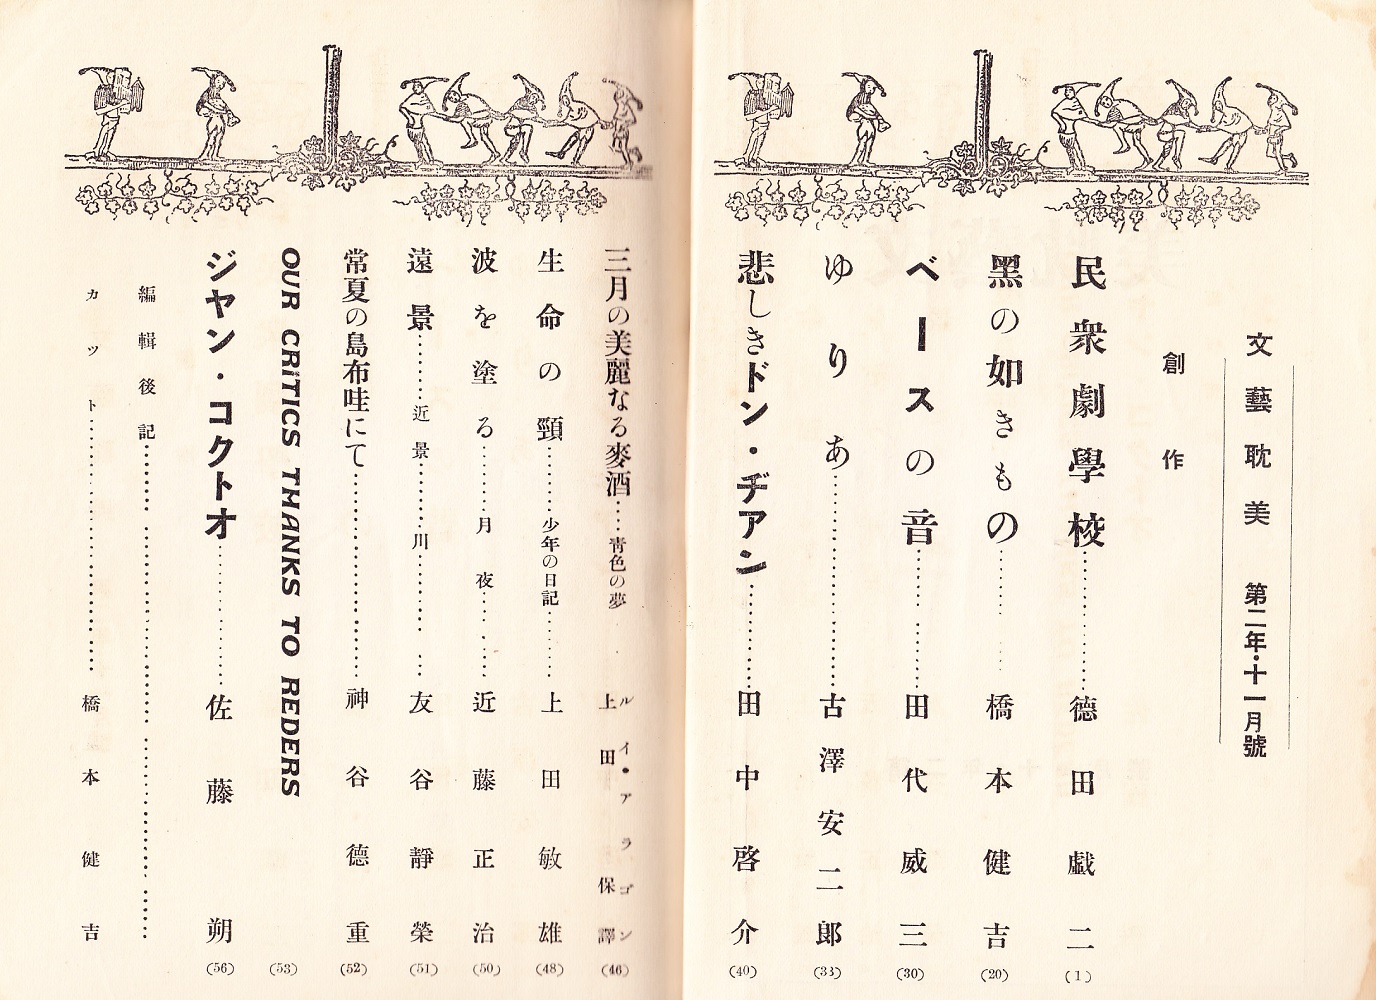 文藝耽美 第二年・十一月號
創作
民衆劇學校……………德田戯二 (1)
黑の如きもの…………橋本健吉 (20)
ベースの音……………田代威三 (30)
ゆりあ…………………古澤安二郎 (33)
悲しきドン・ヂアン…………田中啓介 (40)
三月の美麗なる麥酒……靑色の夢 ルイ・アラゴン 上田保譯 (46)
生命の頸…………少年の日記…………上田敏雄 (48)
波を塗る…………月夜…………近藤正治 (50)
遠景…………近景…………川…………友谷靜榮 (51)
常夏の島布哇にて……………………神谷德重 (52)
OUR CRITICS THANKS TO REDERS (53)
ジヤン・コクトオ……………佐藤朔 (56)
編輯後記……………………
カツト……………………橋本健吉